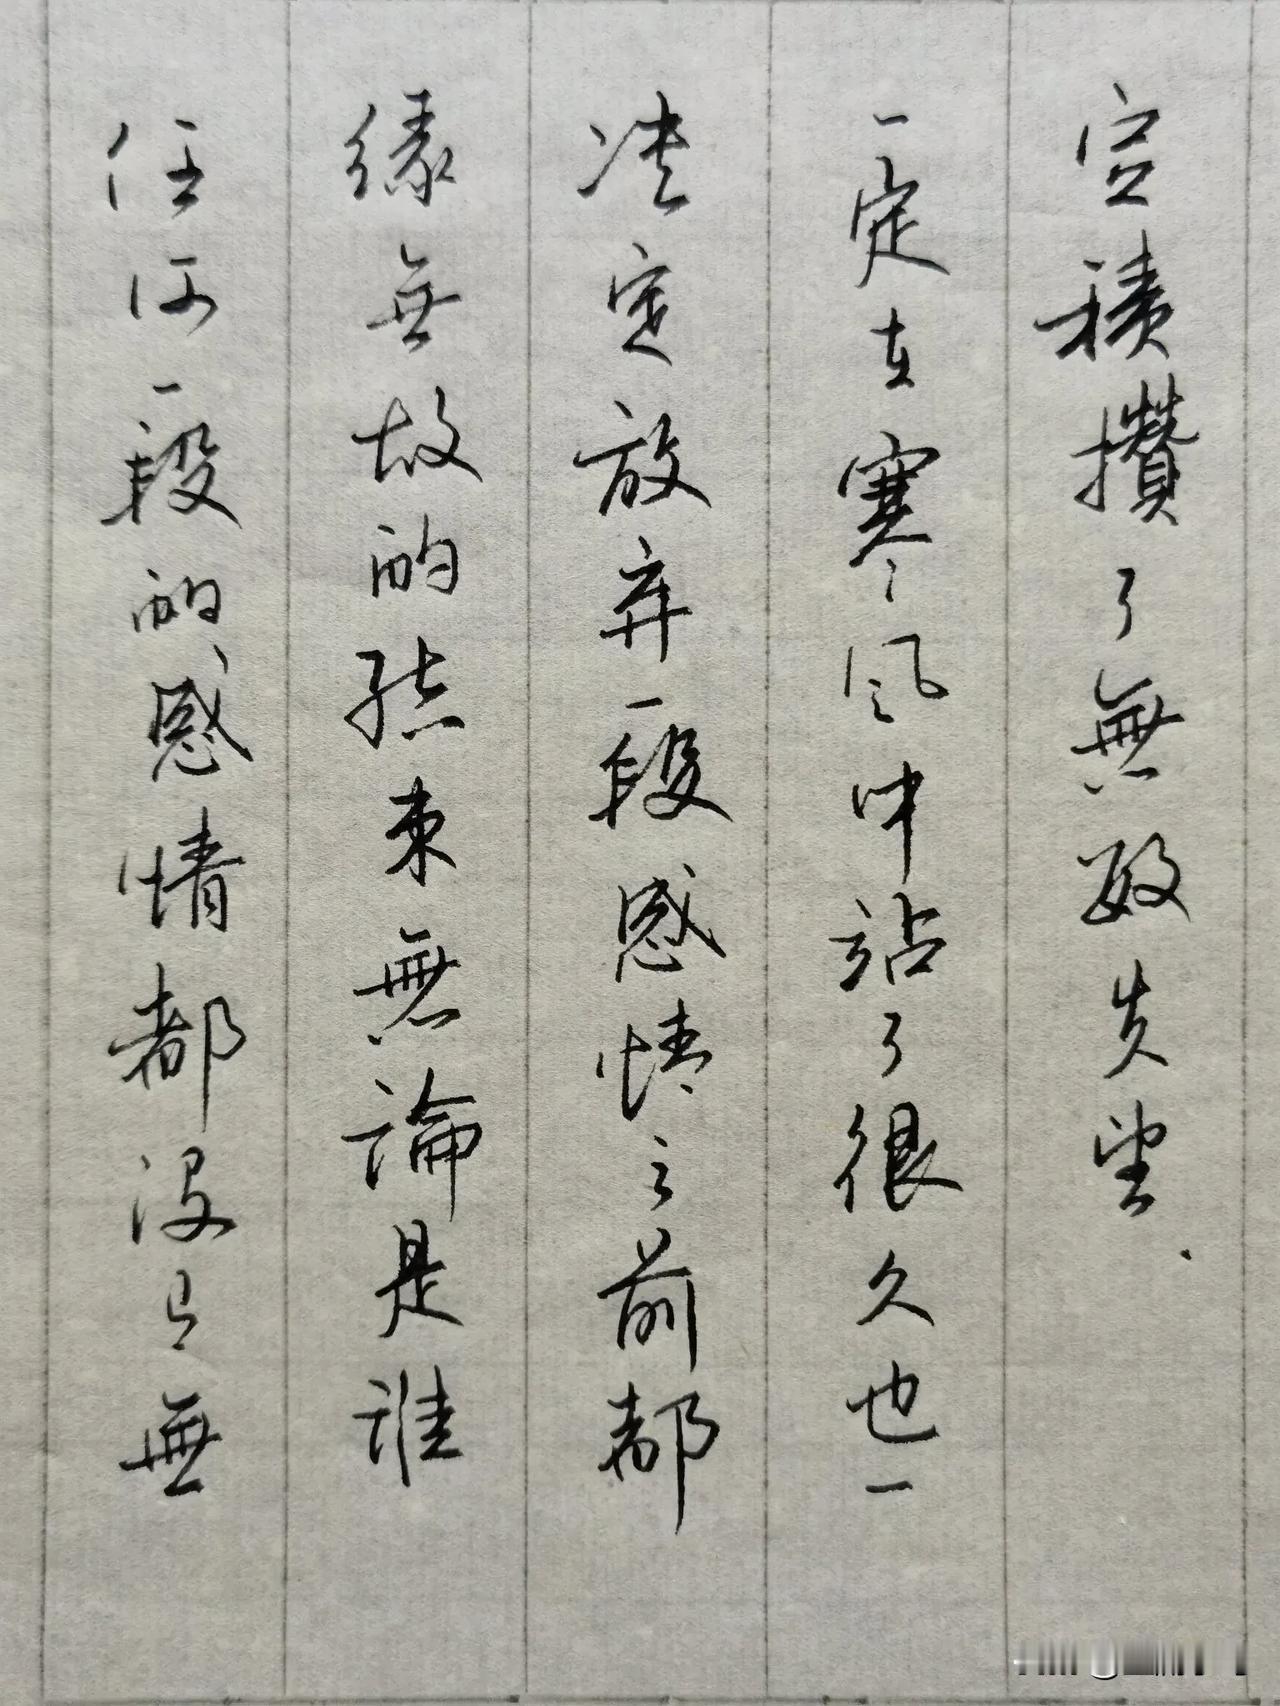 任何一段的感情都没有無
缘無故的结束無論是谁
决定放弃一段感情之前都
一定在寒风中站了很久也一
定積攒了無数失望.